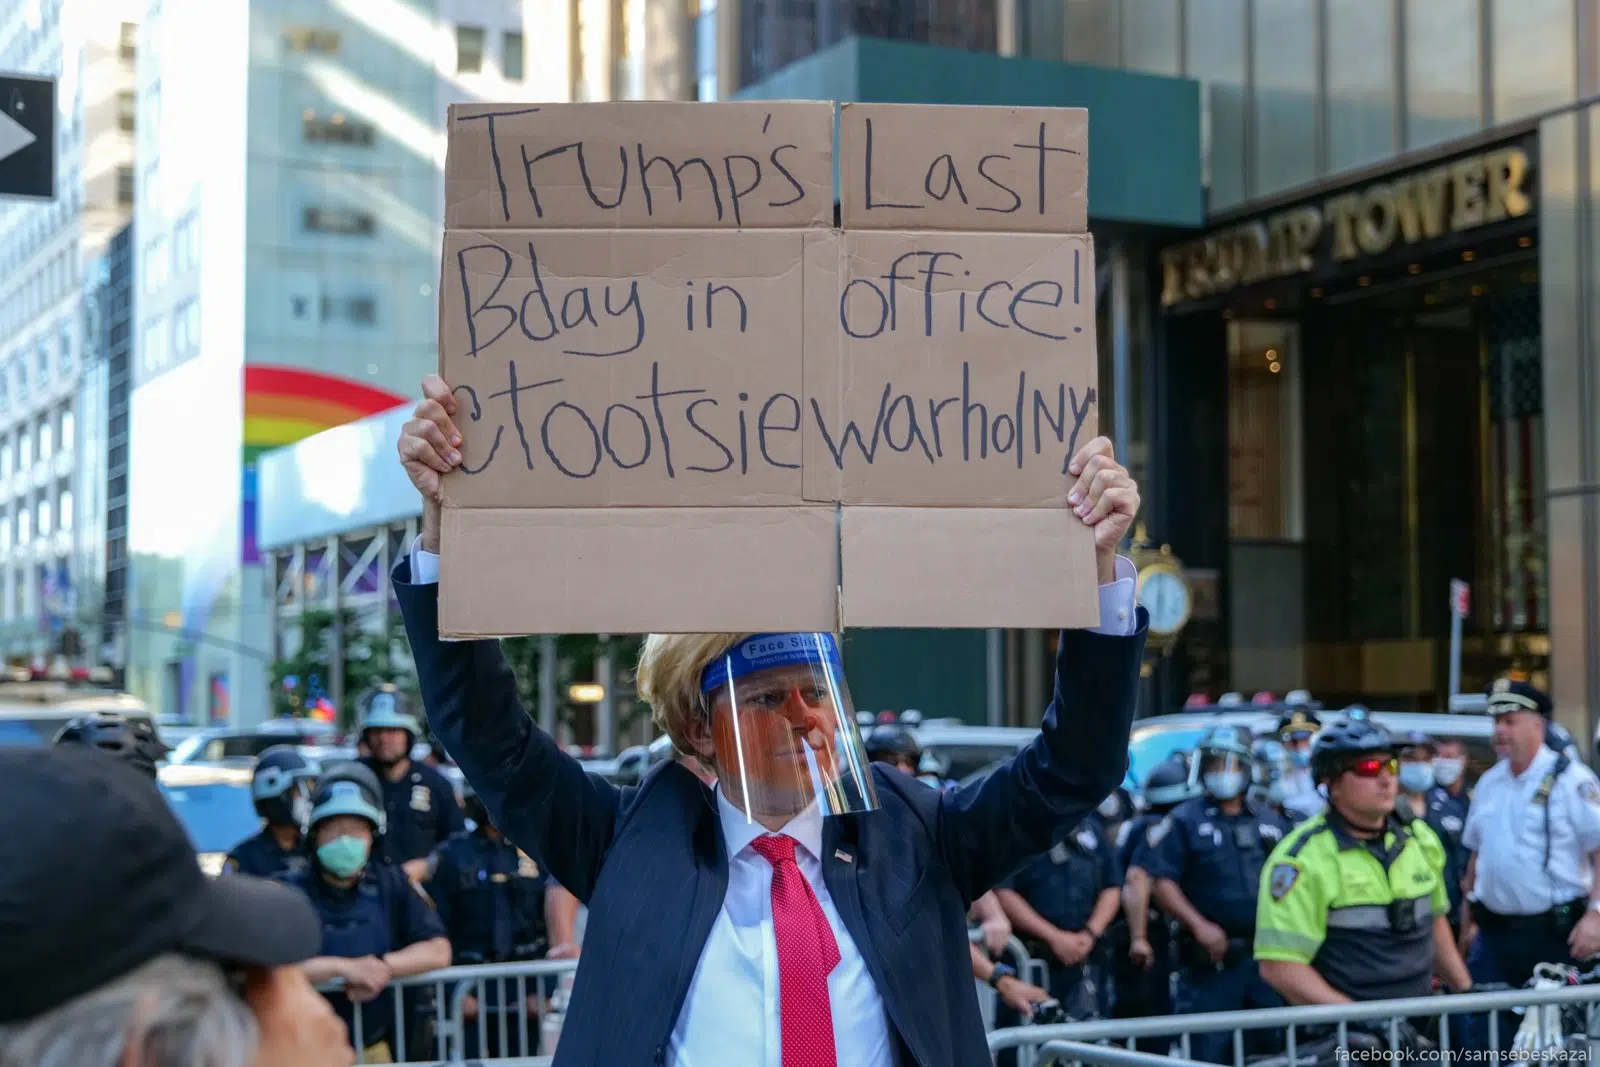 Trump's Last
Bday in office!
@tootsiewarholNY
TRUMP TOWER
Face Shield
facebook.com/samsebeskazal